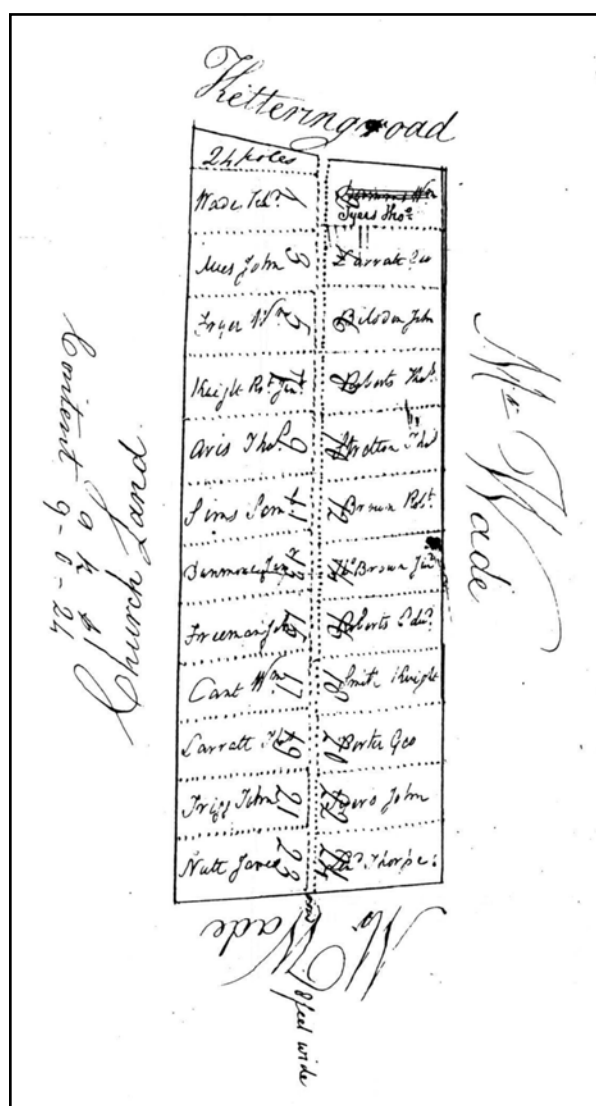 Kettering road
24 Poles
Wade
1
Wm
Tyers Thos
2
John 3
Larratt Geo
Fryer Wm 5
Bilsdon John
6
Knight Robt Junr 7
Roberts Thos
8
Avis Thos 9
Stretton Thos
10
Sims Saml 11
Brown Robt
12
13
Thos Brown Junr
14
Freeman John 15
Roberts Edwd
16
Cant Wm 17
Smith Knight
18
Larratt Thos 19
Porter Geo
20
Tripp John 21
Tyers John
22
Nutt James 23
Thorpe
24
Mr Wade
Mr Wade
Church Land
Content
a r p
9-0-24
8 feet wide